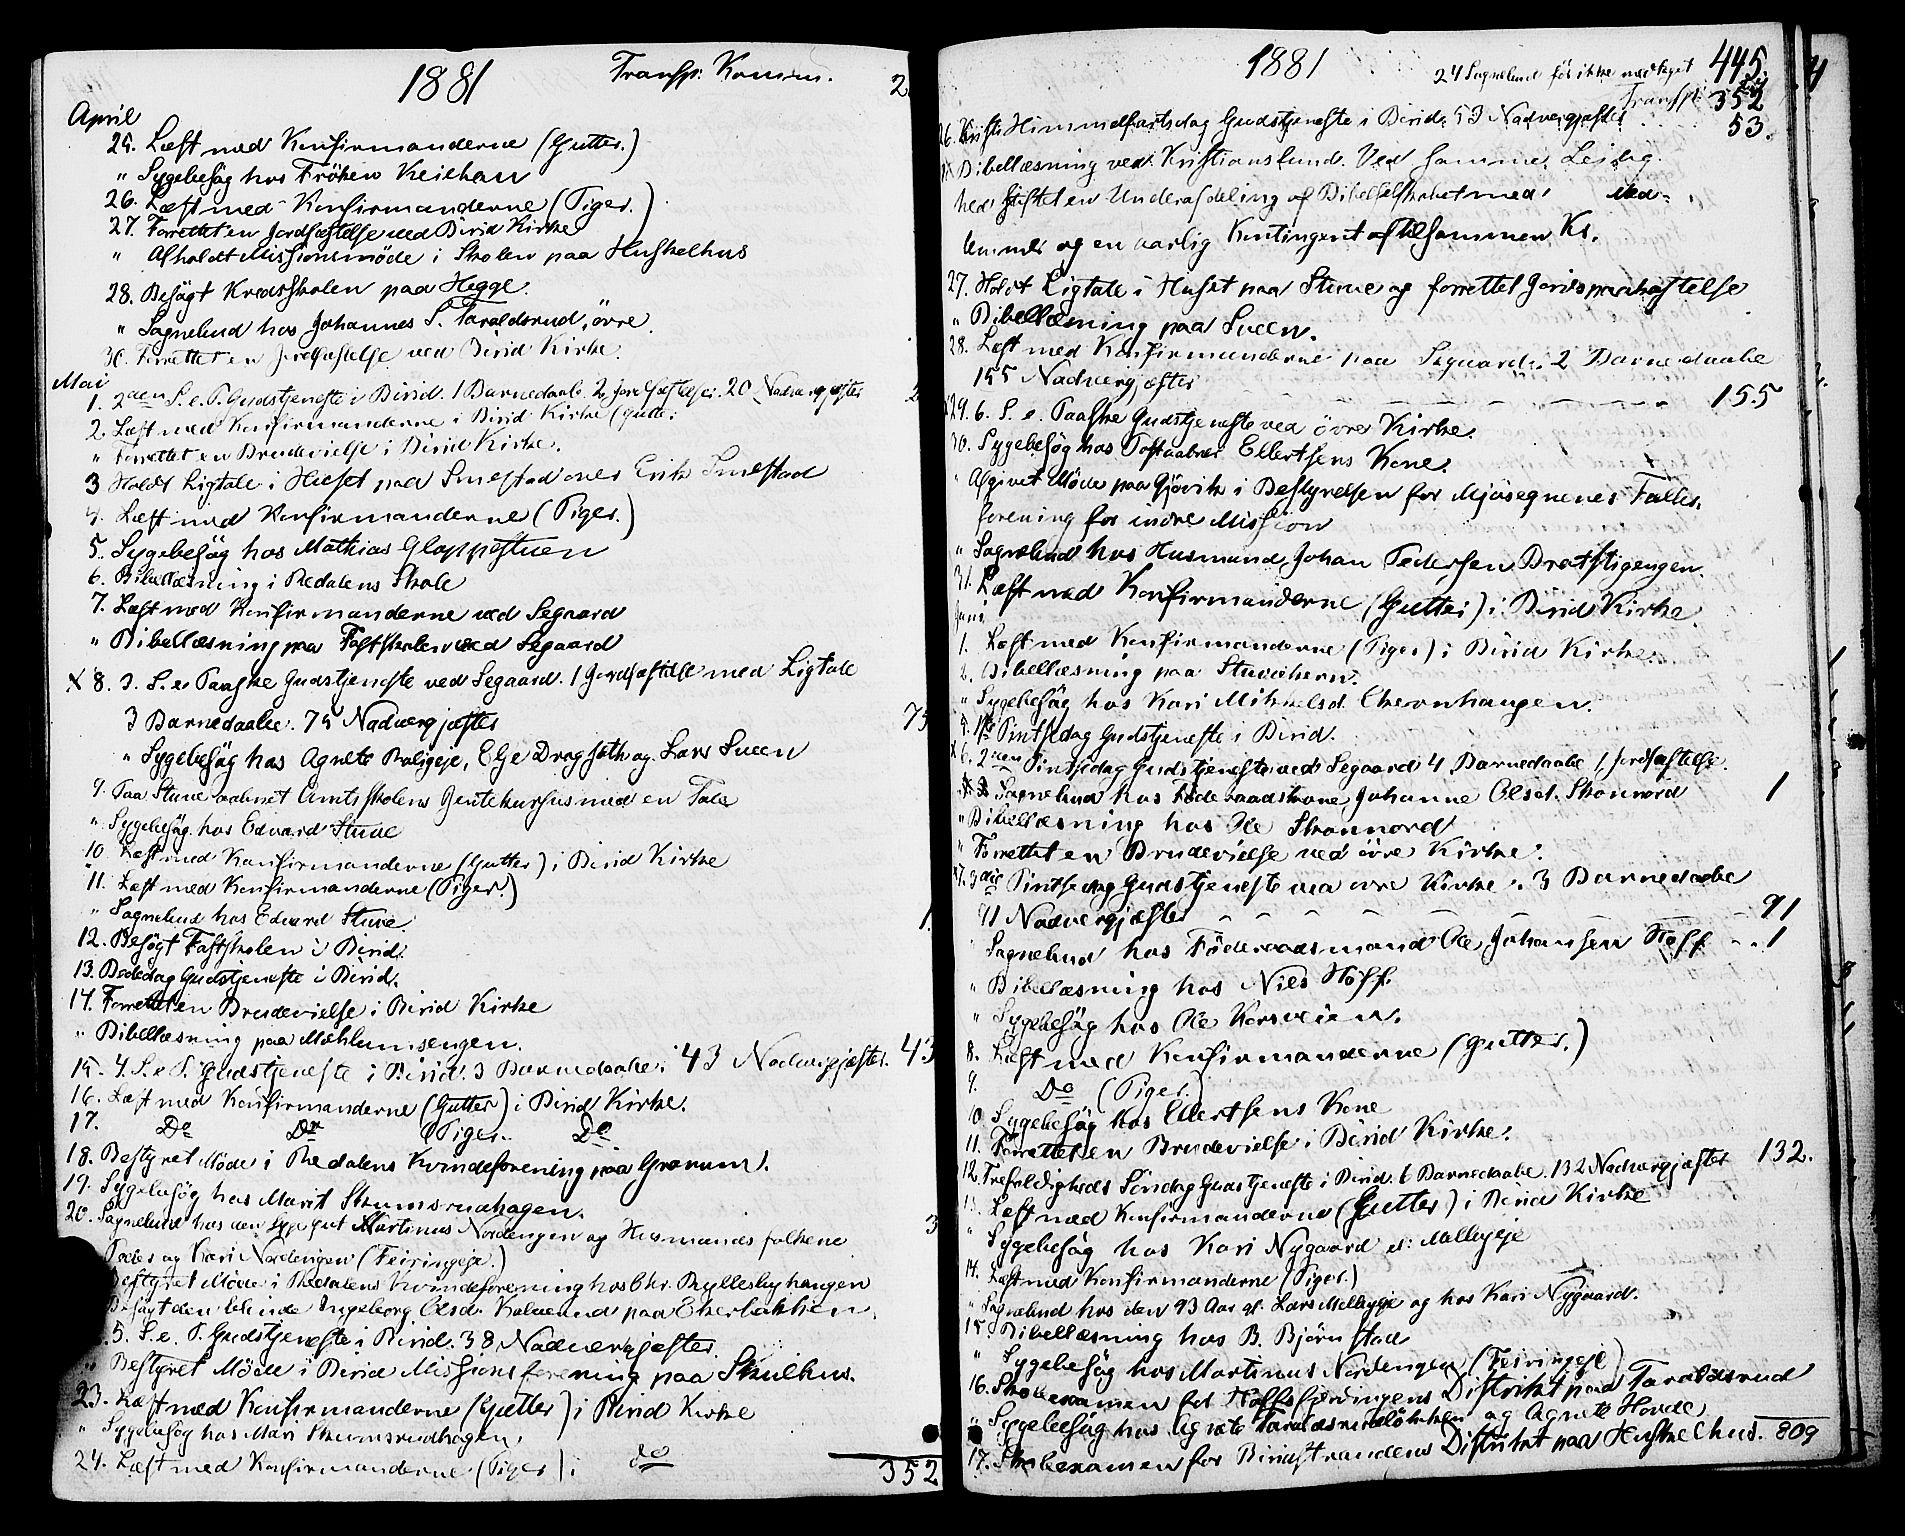 1881 Transp: Komm. 2
April
25. Læst med Konfirmanderne (Gutter.)
" Sygebesøg hos Frøken Keilhau
26. Læst med Konfirmanderne (Piger.)
27. Forrettet en Jordfæstelse ved Birid Kirke
" Afholdt Missionsmøde i Skolen paa Huskelhus
28. Besøgt Kredsskolen paa Hegge.
" Sognebud hos Johannes S. Taraldsrud, øvre.
30. Forrettet en Jordfæstelse ved Birid Kirke.
Mai
1. 2den S. e. P. Gudstjeneste i Birid. 1 Barnedaab. 2 Jordfæstelser. 20 Nadvergjæster 2
2. Læst med Konfirmanderne i Birid Kirke (Gutter
" Forrettet en Brudevielse i Birid Kirke.
3 Holdt Ligtale i Huset paa Smestad over Erik Smestad
4. Læst med Konfirmanderne (Piger.)
5. Sygebesøg hos Mathias Gloppestuen
6. Bibellæsning i Redalens Skole
7. Læst med Konfirmanderne ved Segaard
" Bibellæsning paa Fastskolen ved Segaard
x 8. 3. S. e Paaske Gudstjeneste ved Segaard. 1 Jordfæstelse med Ligtale
3 Barnedaabe. 75 Nadvergjæster 75
" Sygebesøg hos Agnete Roligeje, Elje Dragseth og Lars Sveen
9. Paa Stuve aabnet Amtsskolens Jentekursus med en Tale
" Sygebesøg hos Edvard Stuve
10 Læst med Konfirmanderne (Gutter) i Birid Kirke
11. Læst med Konfirmanderne (Piger.)
" Sognebud hos Edvard Stuve 1.
12. Besøgt Fastskolen i Birid.
13. Bededag Gudstjeneste i Birid.
14. Forrettet en Brudevielse i Birid Kirke
" Bibellæsning paa Mæhlumsengen.
15. 4. S. e P. Gudstjeneste i Birid. 3 Barnedaabe. 43 Nadvergjæster. 43
16. Læst med Konfirmanderne (Gutter) i Birid Kirke.
17. Do Do (Piger. Do
18. Bestyret Møde i Redalens Kvindeforening paa Granum.
19. Sygebesøg hos Marit Skumsrudhagen.
20. Sognebud hos den syge Gut Martinus Nordengen og Husmandsfolkene 3
Peder og Kari Nordengen (Feiringeje.)
Bestyret Møde i Redalens Kvindeforening hos Chr. Bryllesbyhaugen
Besøgt den blinde Ingeborg Olsd. Kalverud paa Ekerbakken.
5. S. e. P. Gudstjeneste i Birid. 38 Nadvergjæster.
" Bestyret Møde i Birid Missionsforening paa Skulhus.
23. Læst med Konfirmanderne (Gutter) i Birid Kirke
" Sygebesøg hos Mari Skumsrudhagen.
24. Læst med Konfirmanderne (Piger) i do
352
1881 24 Sognebud før ikke medtaget 445
Transp: 352
26. Kristi Himmelfartsdag Gudstjeneste i Birid. 53 Nadvergjæster 53.
Bibellæsning ved Kristianslund. Ved samme Leilig-
hed stiftet en Underafdeling af Bibelselskabet med Med-
lemmer og en aarlig Kontingent af tilsammen Kr.
27. Holdt Ligtale i Huset paa Stuve og forrettet Jordspaakastelse
" Bibellæsning paa Sveen.
28. Læst med Konfirmanderne paa Segaard. 2 Barnedaabe
155 Nadvergjæster
x 29. 6. S. e. Paaske Gudstjeneste ved øvre Kirke. 155
30. Sygebesøg hos Postaabner Ellertsens Kone.
" Afgivet Møde paa Gjøvik i Bestyrelsen for Mjøsegnenes Fælles-
forening for indre Mission
" Sognebud hos Husmand Johan Pedersen Bratstigengen.
31. Læst med Konfirmanderne (Gutter) i Birid Kirke.
Juni
1. Læst med Konfirmanderne (Piger) i Birid Kirke.
2. Bibellæsning paa
" Sygebesøg hos Kari Mikkelsd.
5. 1ste Pintsedag Gudstjeneste i Birid.
x 6. 2den Pintsedag Gudstjeneste ved Segaard 4 Barnedaabe 1 Jordfæstelse.
Sognebud hos Føderaadskone Johanne Olsd. Skonnord 1
" Bibellæsning hos Ole Skonnord
" Forrettet en Brudevielse ved øvre Kirke.
x 7. 3die Pintsedag Gudstjeneste ved øvre Kirke. 3 Barnedaabe
91 Nadvergjæster 91
" Sognebud hos Føderaadsmand Ole Johansen Hoff 1
" Bibellæsning hos Nils Hoff.
" Sygebesøg hos Ole Korsveien.
8. Læst med Konfirmanderne (Gutter.)
9. Do (Piger.)
10 Sygebesøg hos Ellertsens Kone
11. Forrettet en Brudevielse i Birid Kirke.
12. Trefoldigheds Søndag Gudstjeneste i Birid. 6 Barnedaabe. 132 Nadvergjæster 132.
13. Læst med Konfirmanderne (Gutter) i Birid Kirke
" Sygebesøg hos Kari Nygaard e: Melbyeje
14. Læst med Konfirmanderne (Piger.)
" Sognebud hos den 93 Aar gl. Lars Melbyeje og hos Kari Nygaard.
15. Bibellæsning hos B. Bjørnstad
" Sygebesøg hos Martinus Nordengen (Feiringeje)
16. Skoleexamen for Hoffsfjerdingens Distrikt paa Taraldsrud
" Sygebesøg hos Agnete Taraldsrudløkken og Agnete Hovde.
17. Skoleexamen for Biristrandens Distrikt paa Huskelhus. 809